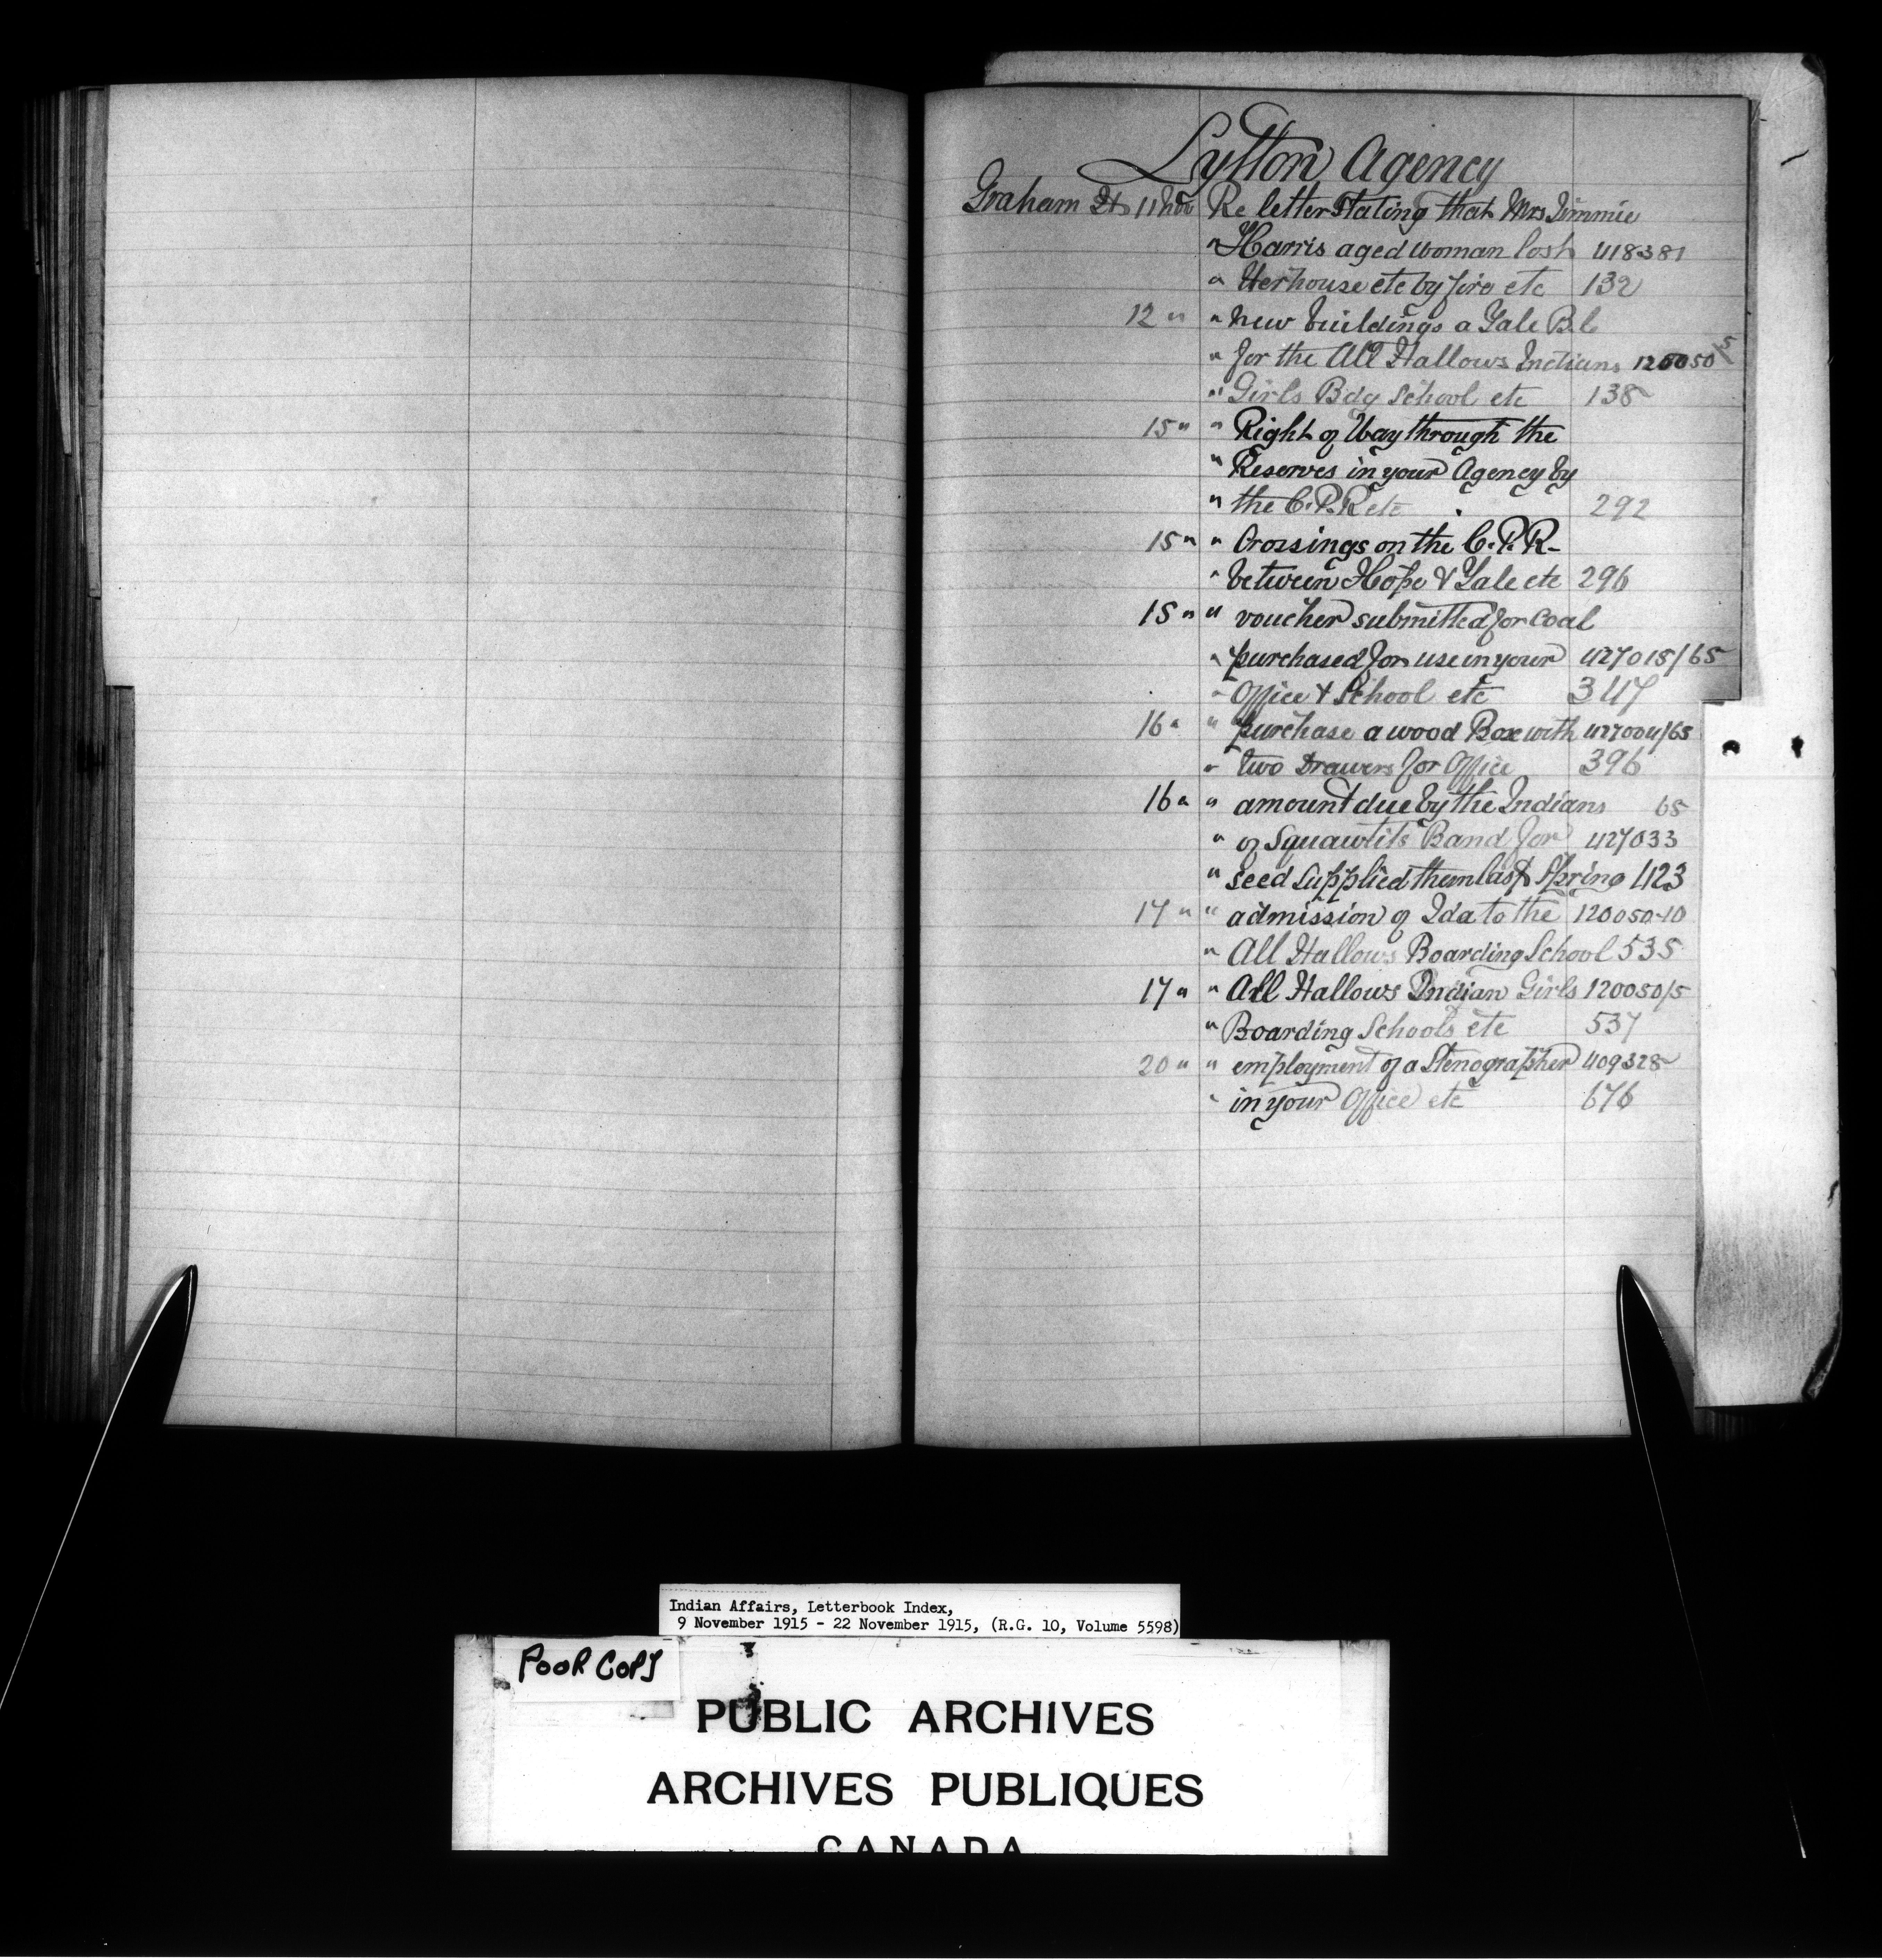 Lytton Agency
Graham Ht 11 Nov Re letter stating that Mrs Jimmie
" Harris aged woman lost 418381
" Her house etc by fire etc 132
12 " " New buildings a Yale B.C
" for the All Hallows Indians 120050/5
" Girls Bdg School etc 138
15 " " Right of Way through the
" Reserves in your Agency by
" the C.P.R etc 292
15 " " Crossings on the C.P.R-
" between Hope & Yale etc 296
15 " " voucher submitted for coal
" purchased for use in your 427015/65
" Office & School etc 347
16 " " purchase a wood Box with 427004/65
" two Drawers for Office 396
16 " " amount due by the Indians 65
" of Squawtits Band for 427033
" seed supplied them last Spring 423
17 " " admission of Ida to the 120050-10
" All Hallows Boarding School 535
17 " " All Hallows Indian Girls 120050/5
" Boarding Schools etc 537
20 " " employment of a Stenographer 409328
" in your Office etc 676
Indian Affairs, Letterbook Index,
9 November 1915 - 22 November 1915, (R.G. 10, Volume 5598)
POOR COPY
PUBLIC ARCHIVES
ARCHIVES PUBLIQUES
CANADA